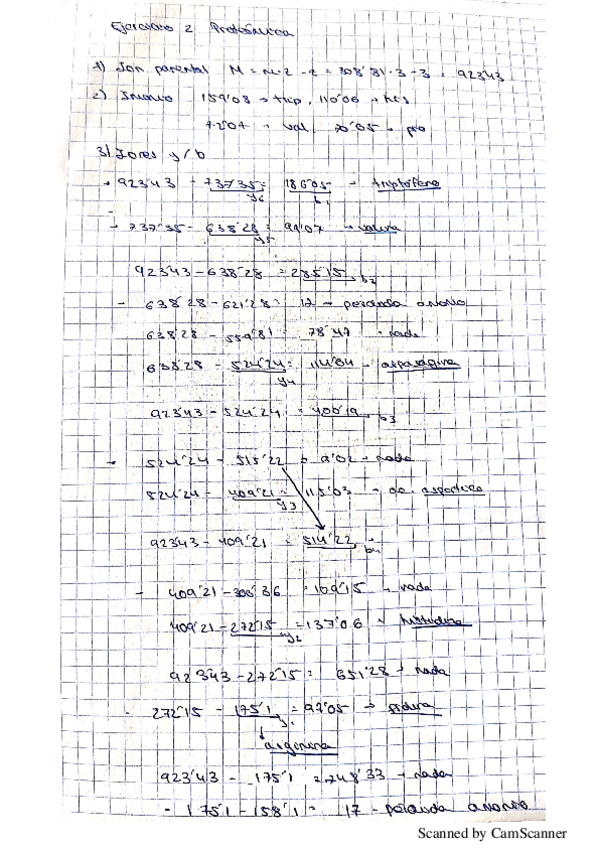 Ejercicio 2 Proteómica
1) Ion parental M = m·z - z = 308'81·3 - 3 = 923'43
2) Inmonio 159'08 → trip, 110'06 → his
72'07 → val, 70'05 → pro
3) Iones y/b
923'43 - 737'35 = 186'05 → triptófano
y6 b1
737'35 - 638'28 = 99'07 → valina
y5
923'43 - 638'28 = 285'15, b2
- 638'28 - 621'28 = 17 → perdida amonio
638'28 - 559'81 = 78'47 nada
638'28 - 524'24 = 114'04 → asparagina
y4
923'43 - 524'24 = 400'19, b3
- 524'24 - 515'22 = 9'02 → nada
524'24 - 409'21 = 115'03 → ac. aspartico
y3
923'43 - 409'21 = 514'22 →
b4
- 409'21 - 300'36 = 109'15 → nada
409'21 - 272'15 = 137'06 → histidina
y2
923'43 - 272'15 = 651'28 → nada
- 272'15 - 175'1 = 97'05 → prolina
y1
arginina
923'43 - 175'1 = 748'33 → nada
- 175'1 - 158'1 = 17 → perdida amonio
Scanned by CamScanner